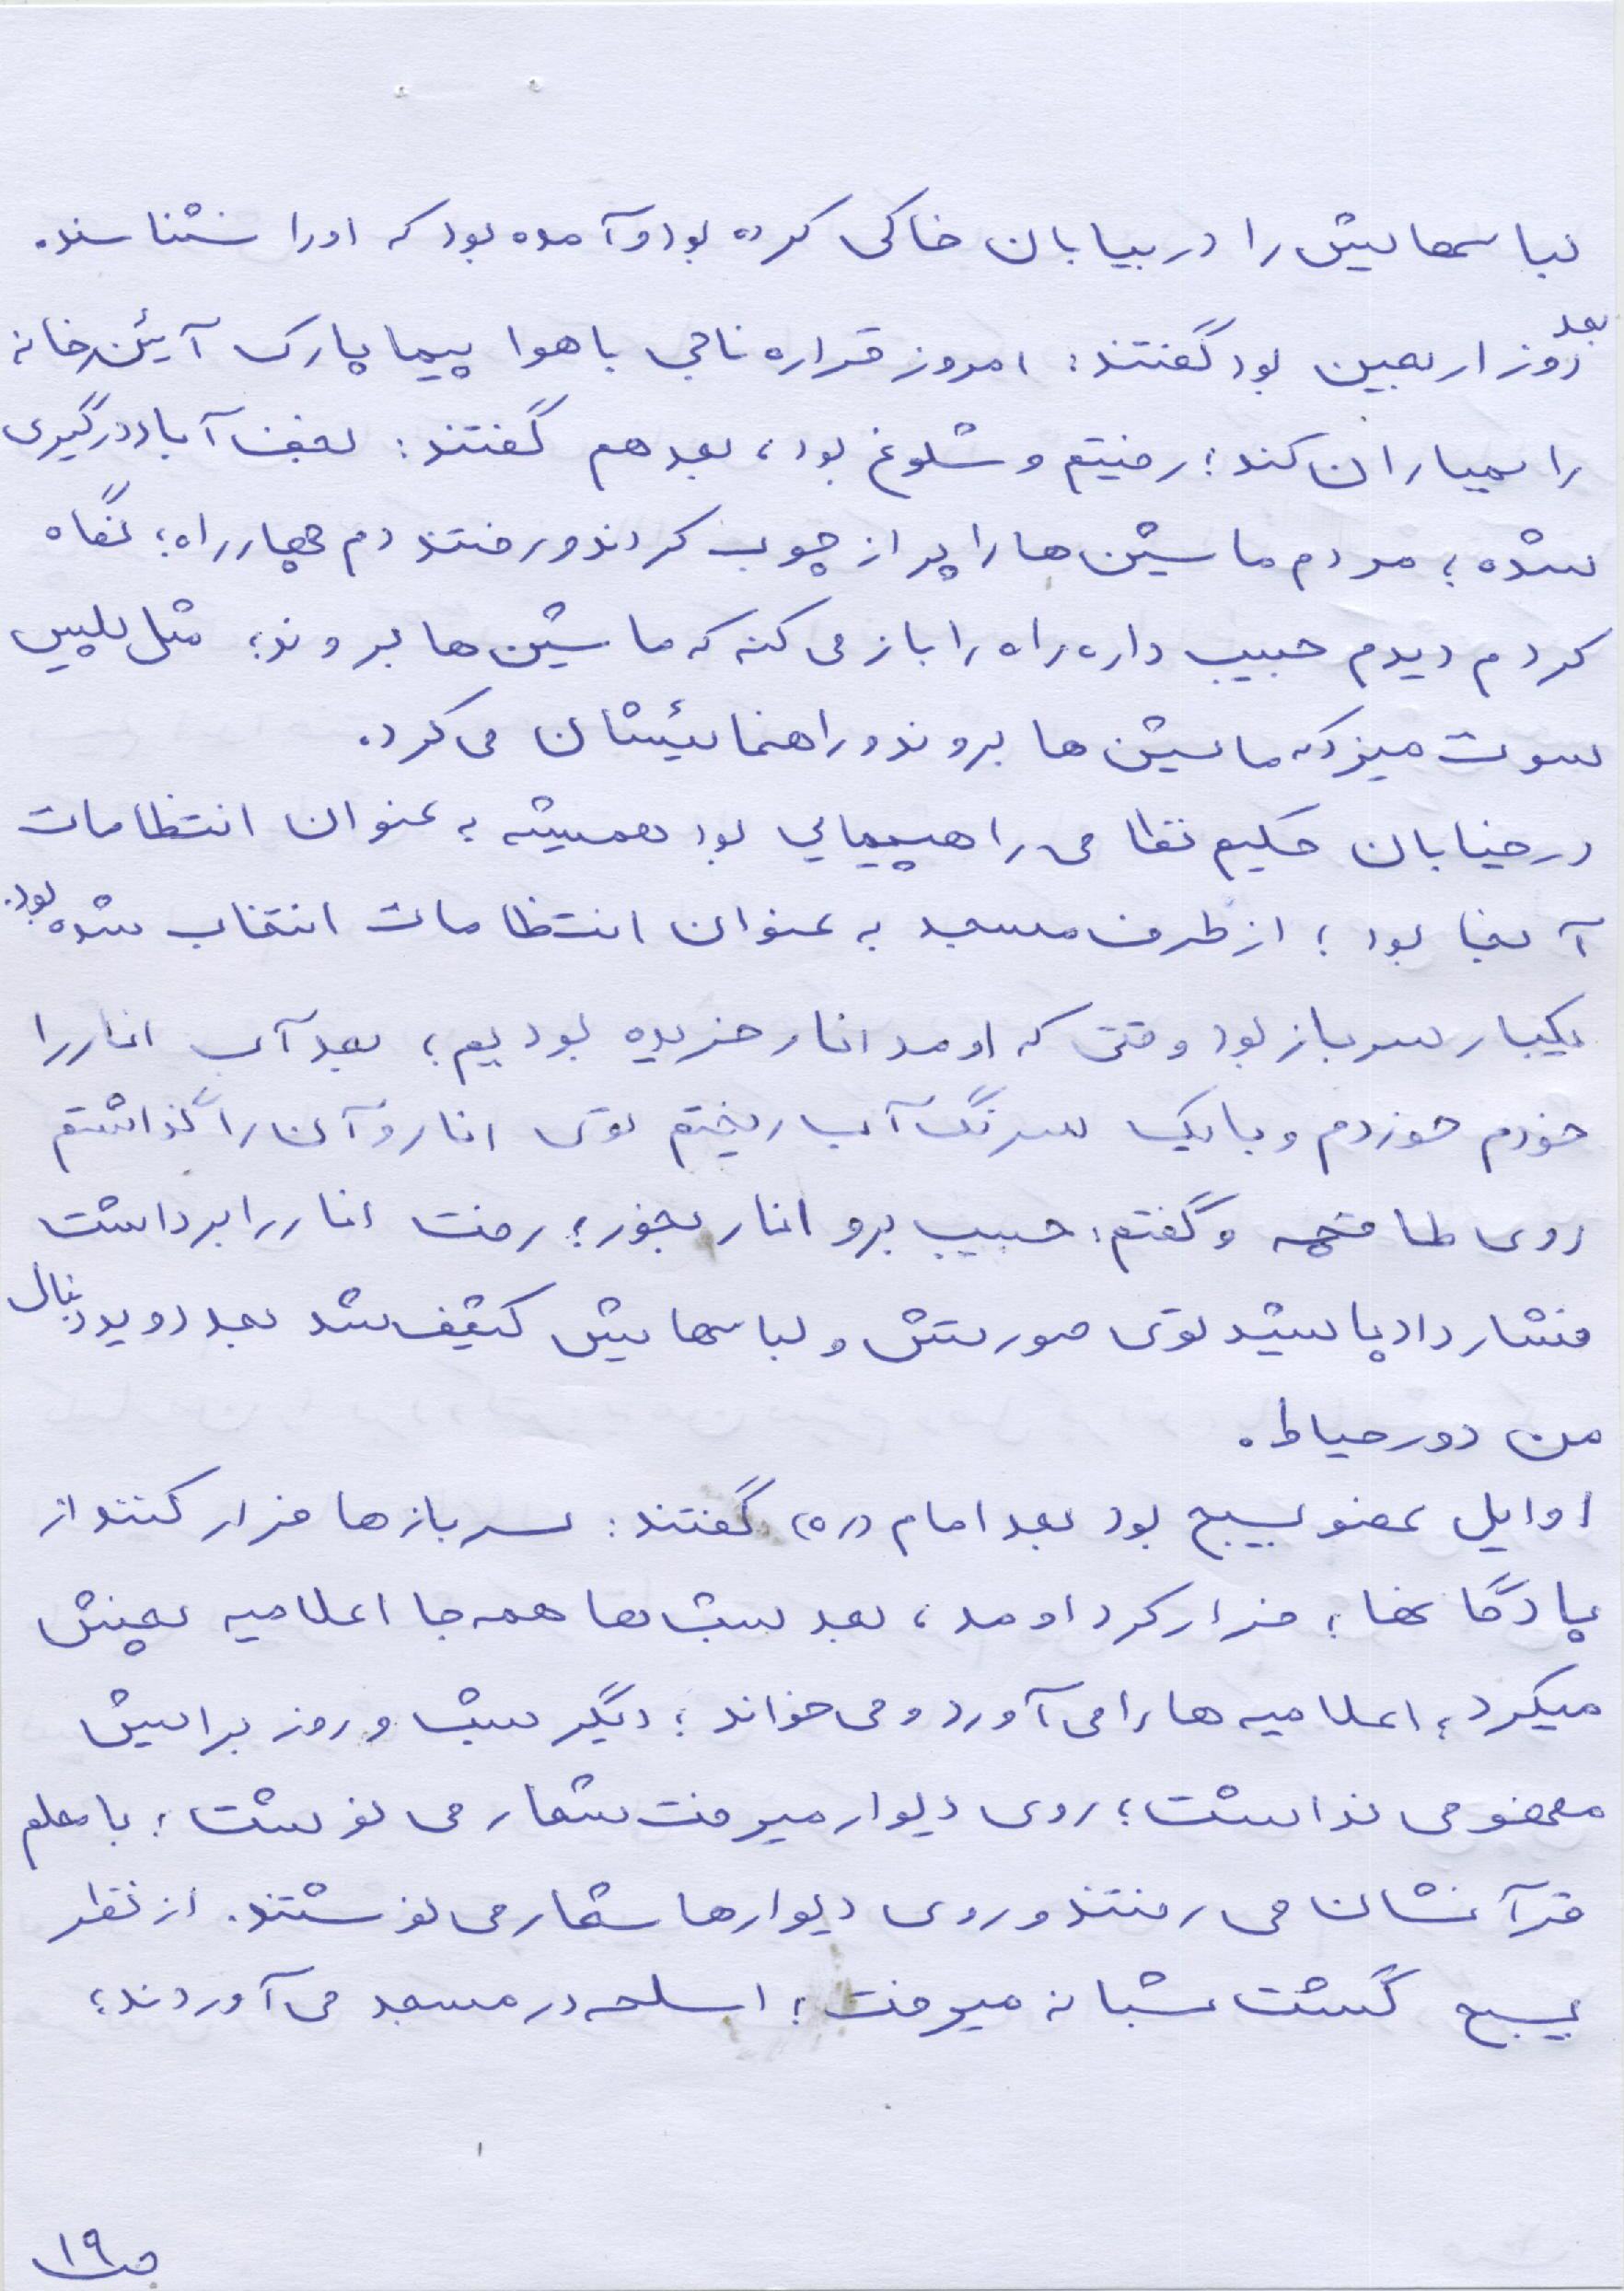 لباسهایش را در بیابان خاکی کرده بود و آمده بود که او را نشناسند.
بعد روز اربعین بود گفتند: امروز قراره ناجی با هوا پیما پارک آیئن خانه
را بمباران کند؛ رفتیم و شلوغ بود، بعد هم گفتند: نجف آباد درگیری
شده؛ مردم ماشین ها را پر از چوب کردند و رفتند دم چهار راه؛ نگاه
کردم دیدم حبیب داره راه را باز می کنه که ماشین ها بروند؛ مثل پلیس
سوت میزد که ماشین ها بروند و راهنمائیشان می کرد.
در خیابان حکیم نظامی راهپیمایی بود همیشه به عنوان انتظامات
آنجا بود؛ از طرف مسجد به عنوان انتظامات انتخاب شده بود.
یکبار سرباز بود وقتی که اومد انار خریده بودیم؛ بعد آب انار را
خودم خوردم و با یک سرنگ آب ریختم توی انار و آن را گذاشتم
روی طاقچه و گفتم: حبیب برو انار بخور؛ رفت انار را برداشت
فشار داد پاشید توی صورتش و لباسهایش کثیف شد بعد دوید دنبال
من دور حیاط.
اوایل عضو بسیج بود بعد امام (ره) گفتند: سربازها فرار کنند از
پادگانها؛ فرار کرد اومد، بعد شب ها همه جا اعلامیه پخش
میکرد؛ اعلامیه ها را می آورد و می خواند؛ دیگر شب و روز برایش
مفهومی نداشت؛ روی دیوار میرفت شعار می نوشت؛ با معلم
قرآنشان می رفتند و روی دیوارها شعار می نوشتند. از نظر
بسیج گشت شبانه میرفت؛ اسلحه در مسجد می آوردند؛
ص۱۹